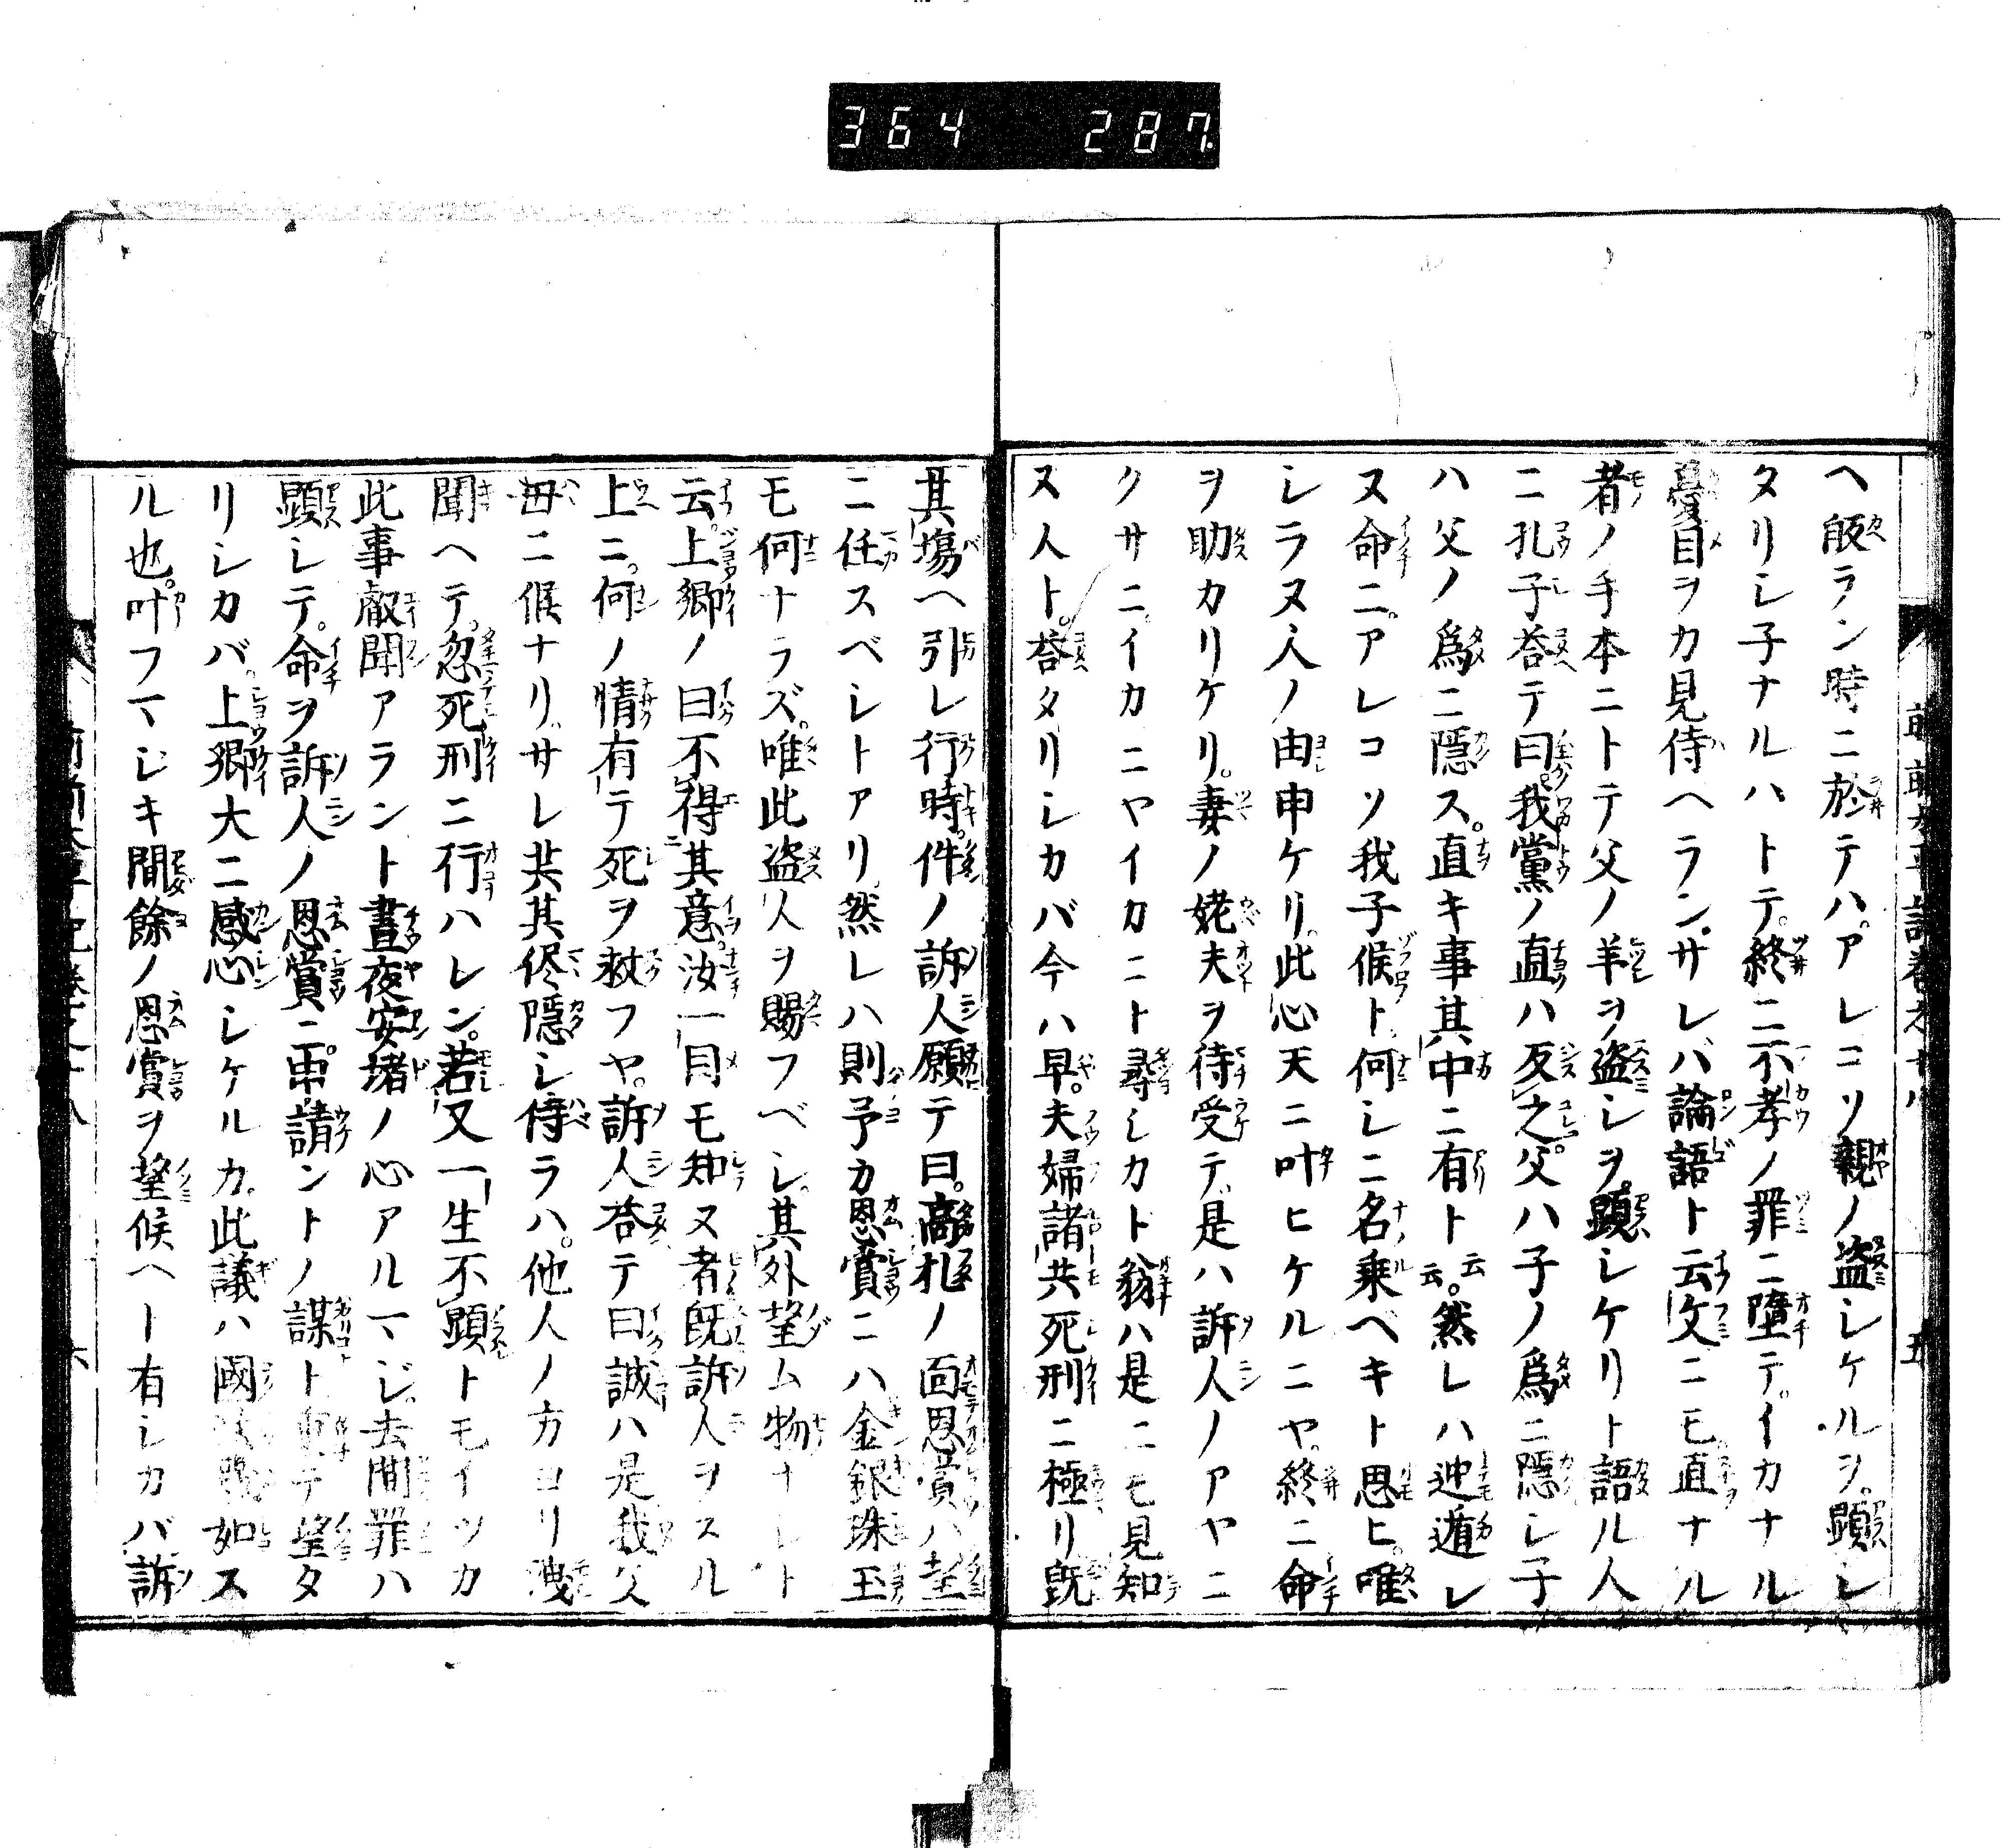 364 287
前前太平記巻之十八 五
ヘ皈ラン時ニ於テハ。アレコソ親ノ盗シケルヲ。顕シ
タリシ子ナルハトテ。終ニ不孝ノ罪ニ墮テ。イカナル
憂目ヲカ見侍ヘラン。サレバ論語ト云文ニモ直ナル
者ノ手本ニトテ父ノ羊ヲ盗シヲ。顕シケリト語ル人
ニ孔子荅テ曰。我黨ノ直ハ反之。父ハ子ノ爲ニ隠シ子
ハ父ノ爲ニ隠ス。直キ事其中ニ有ト云云。然レハ迚遁レ
ヌ命ニ。アレコソ我子候ト。何シニ名乗ベキト思ヒ。唯
シラヌ人ノ由申ケリ。此心天ニ叶ヒケルニヤ。終ニ命
ヲ助カリケリ。妻ノ姥夫ヲ待受テ。是ハ訴人ノアヤニ
クサニ。イカニヤイカニト尋シカド翁ハ是ニモ見知
ヌ人ト。荅タリシカバ今ハ早。夫婦諸共死刑ニ極リ既
其塲ヘ引レ行時。件ノ訴人願テ曰。高札ノ面恩賞ハ望
ニ任スベシトアリ。然レハ則予カ恩賞ニハ金銀珠玉
モ何ナラズ。唯此盗人ヲ賜フベシ。其外望ム物ナレト
云。上卿ノ曰不得其意。汝一目モ知ヌ者既訴人ヲスル
上ニ。何ノ情有テ死ヲ救フヤ。訴人荅テ曰誠ハ是我父
母ニ候ナリ。サレ共其侭隠シ侍ラハ。他人ノ方ヨリ洩
聞ヘテ。忽死刑ニ行ハレン。若又一生不顕トモイツカ
此事叡聞アラント晝夜安堵ノ心アルマジ。去間罪ハ
顕シテ。命ヲ訴人ノ恩賞ニ。申請ントノ謀ト申テ望タ
リシカバ。上卿大ニ感心シケルカ。此議ハ國如ス
ル也。叶フマシキ間餘ノ恩賞ヲ望候ヘト有シカバ訴
前前太平記巻之十八 六